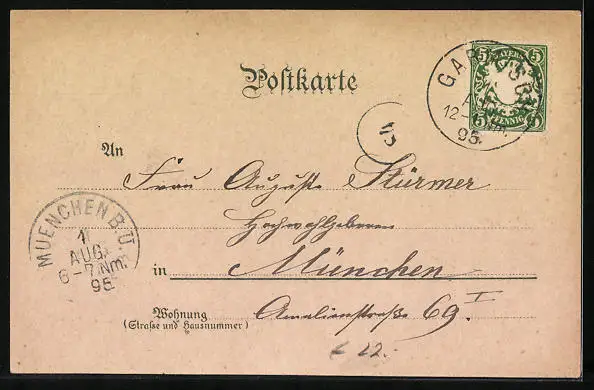 Postkarte
BAYERN
5 5
5 PFENNIG 5
GAR
12-
Nm.
95.
An
Frau Auguste Stürmer
Hochwohlgeboren
MUENCHEN B.U.
AUG.
6-7 Nm.
95
in München
Wohnung
(Straße und Hausnummer)
Amalienstraße 69. I
22.-